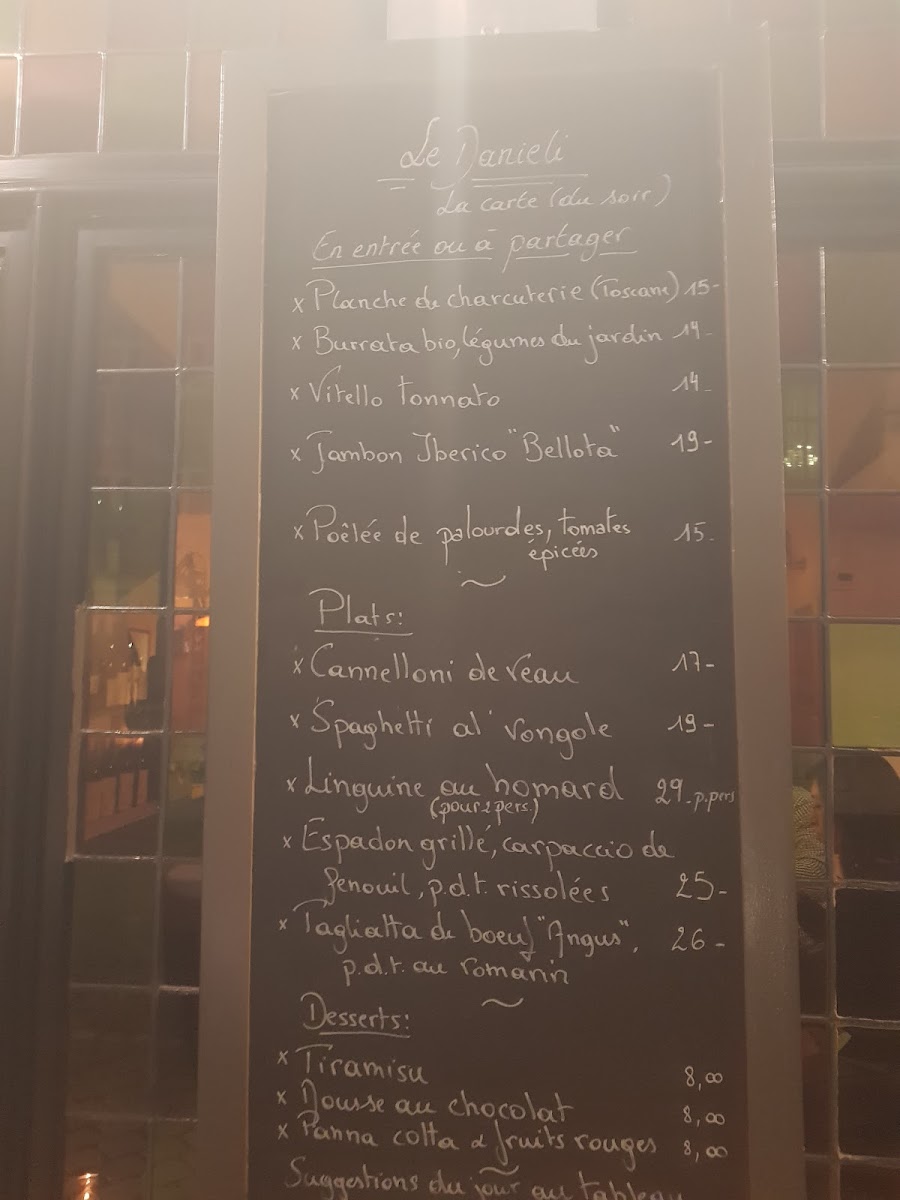 Le Danieli
La carte (du soir)
En entrée ou à partager
x Planche de charcuterie (Toscane) 15-
x Burrata bio, légumes du jardin 14-
x Vitello tonnato 14-
x Jambon Iberico "Bellota" 19-
x Poêlée de palourdes, tomates 15.
épicées
~
Plats:
x Cannelloni de veau 17-
x Spaghetti al' vongole 19-
x Linguine au homard 29.p.pers
(pour 2 pers.)
x Espadon grillé, carpaccio de
fenouil, p.d.t. rissolées 25-
x Tagliatta de boeuf "Angus", 26-
p.d.t. au romarin
~
Desserts:
x Tiramisu 8,00
x Mousse au chocolat 8,00
x Panna cotta & fruits rouges 8,00
~
Suggestions du jour au tableau